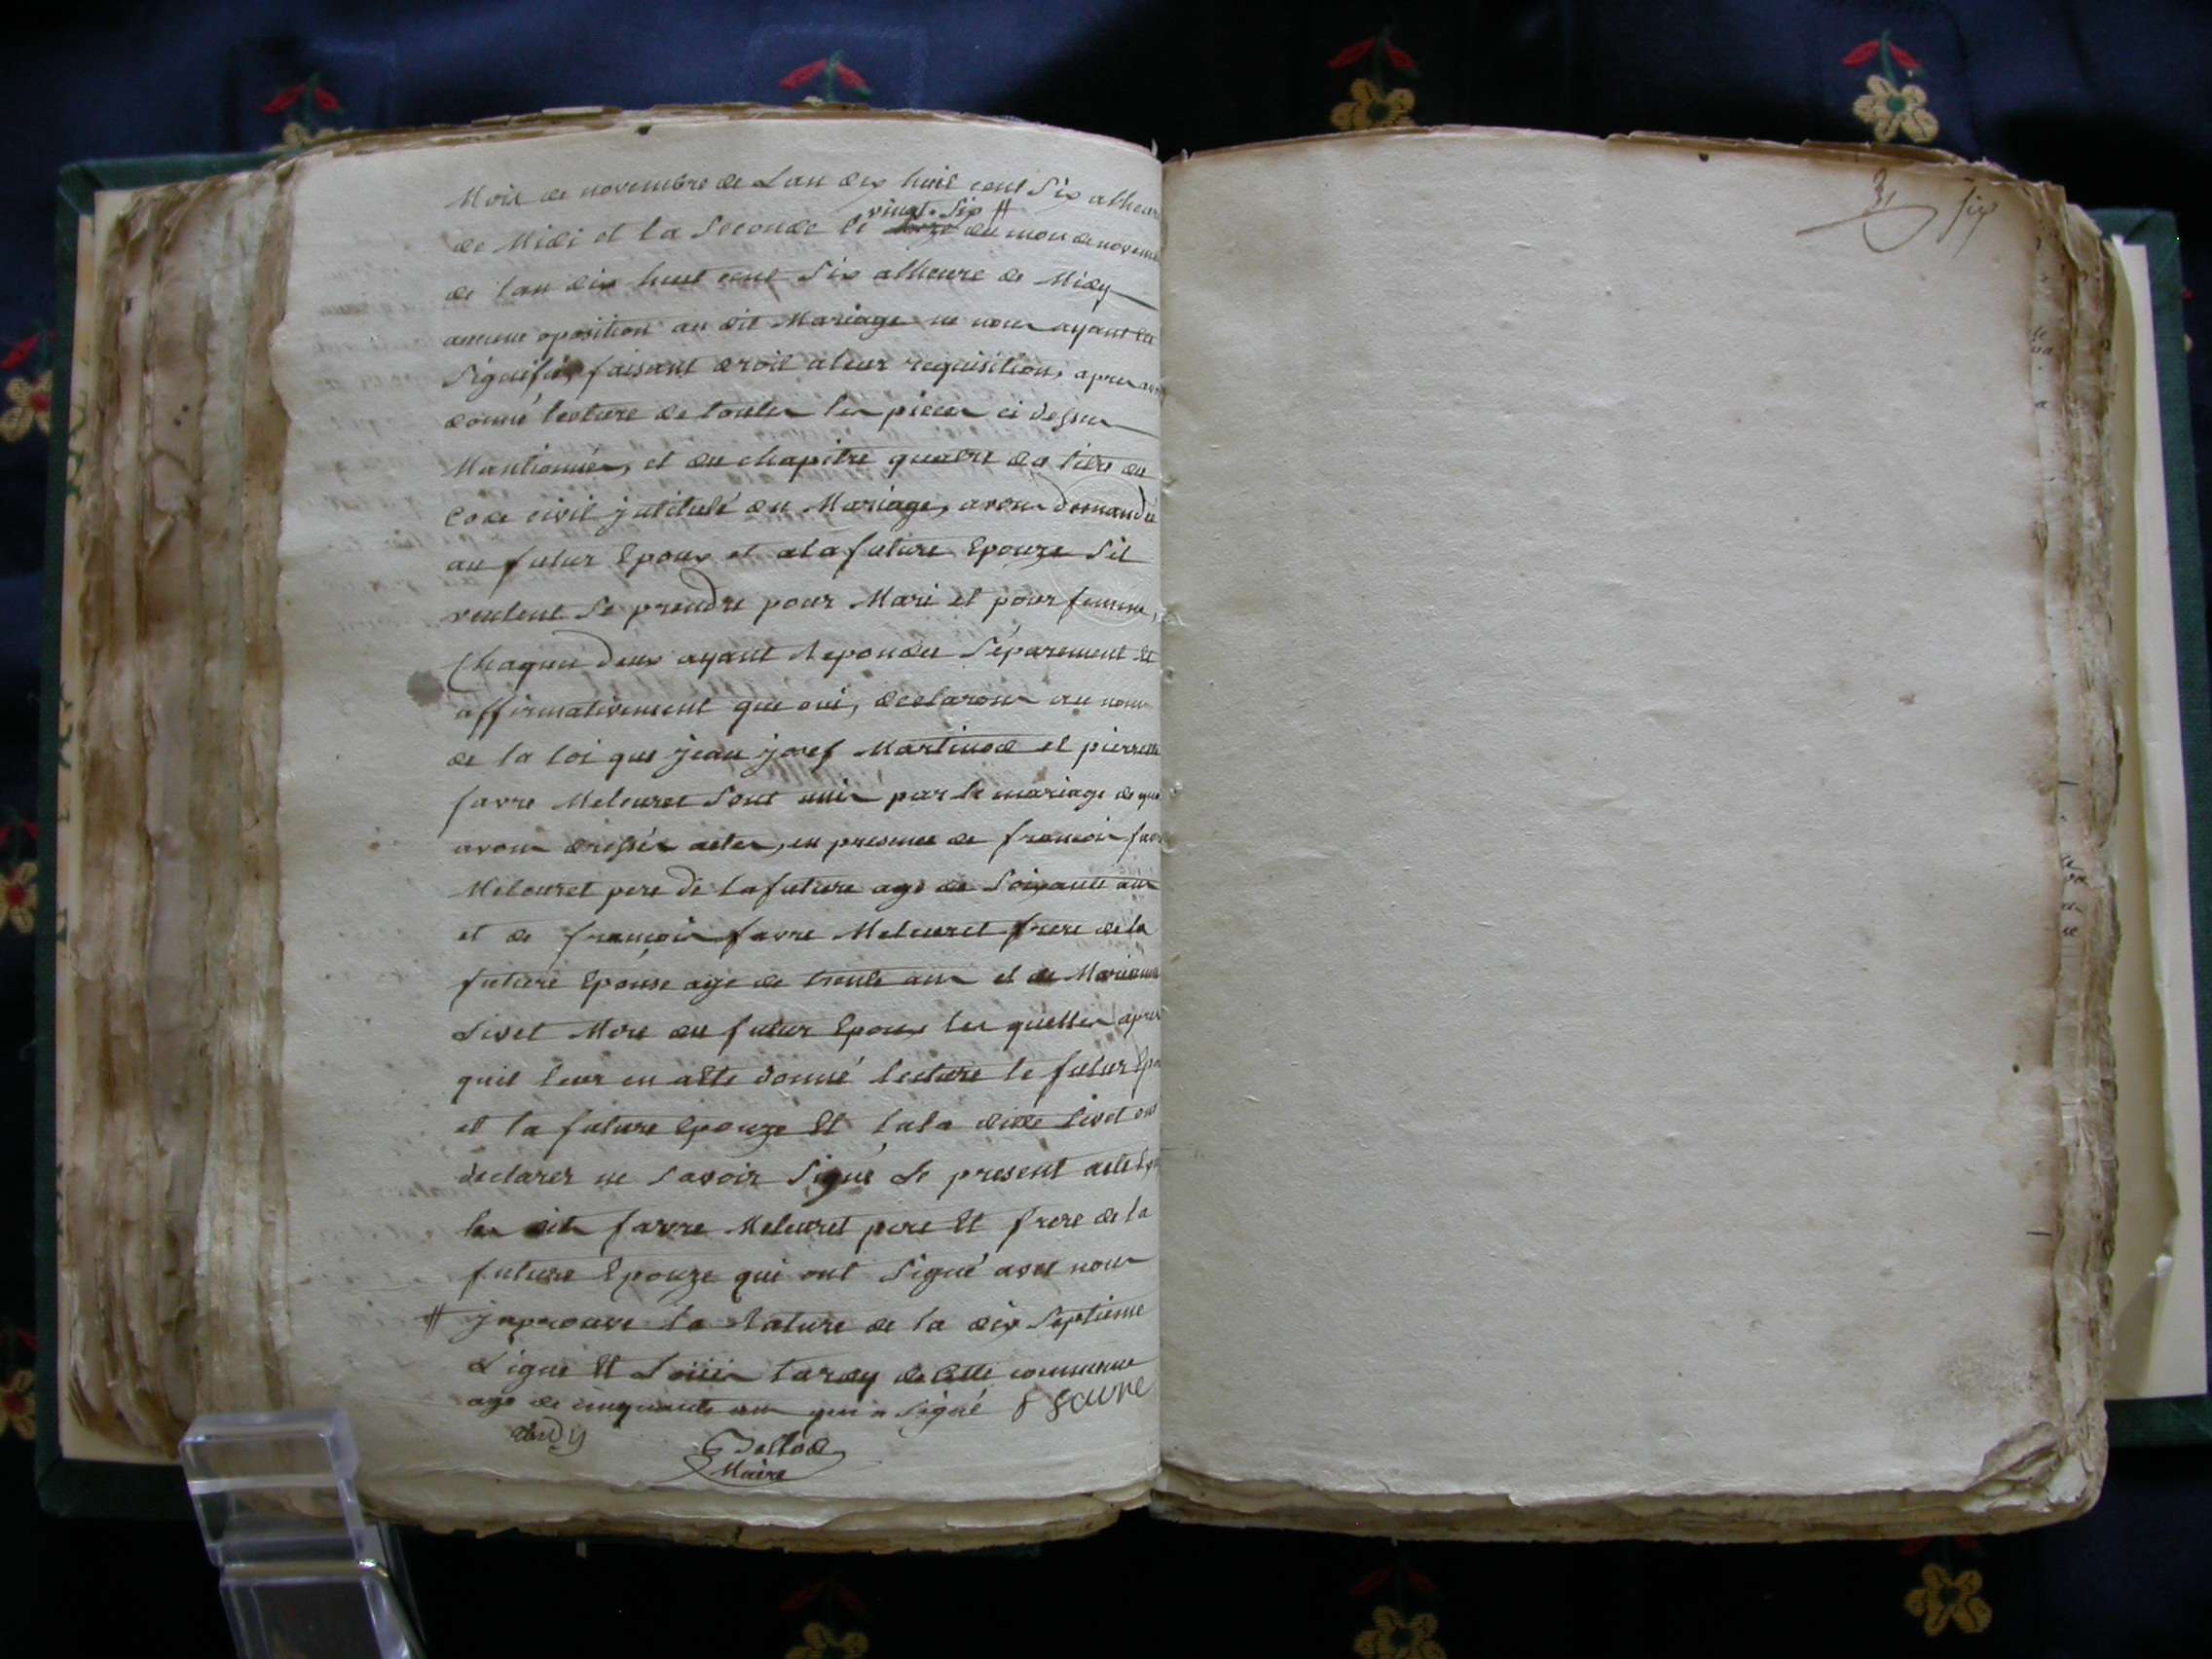 Mois de novembre de Lan dix huit cent Six alheure
de Midi et la Seconde le vingt-Six # du mois de novem
de lan dix huit cent Six alheure de Midy
aucune oposition au dit Mariage ne nous ayant été
Signifié, faisant droit aleur requisition, apres avo
donné lecture de toutes les pieces ci dessus
Mantionnées, et du chapitre quatre du titre du
Code civil jntitulé du Mariage, avons demandé
au futur Epoux et ala future Epouze Sil
veulent Se prendre pour Mari et pour femme,
Chaqun deux ayant Repondu Séparement Et
affirmativement que oui, declarons au nom
de la loi que jean josef Martinod et pierrette
favre Meleuret Sont unis par le mariage de quoi
avons dressés actes, en presence de francois favr
Melouret pere de la future age de Soixante ans
et de francois favre Meleuret frere de la
future Epouse age de trente ans et de Marianne
Livet Mere du futur Epoux les quelles apres
quil leur en a été donné lecture le futur Epou
et la future Epouze Et la dite Livet ont
declarer ne Savoir Signé Le present acte
les dits favre Meleuret pere Et frere de la
future Epouze qui ont Signé avec nous
# japrouve la Rature de la dix Septieme
Ligne Et Louis tardy de Cette commune
age de cinquante ans qui a Signé F Favre
tardy
Maire
3 Six